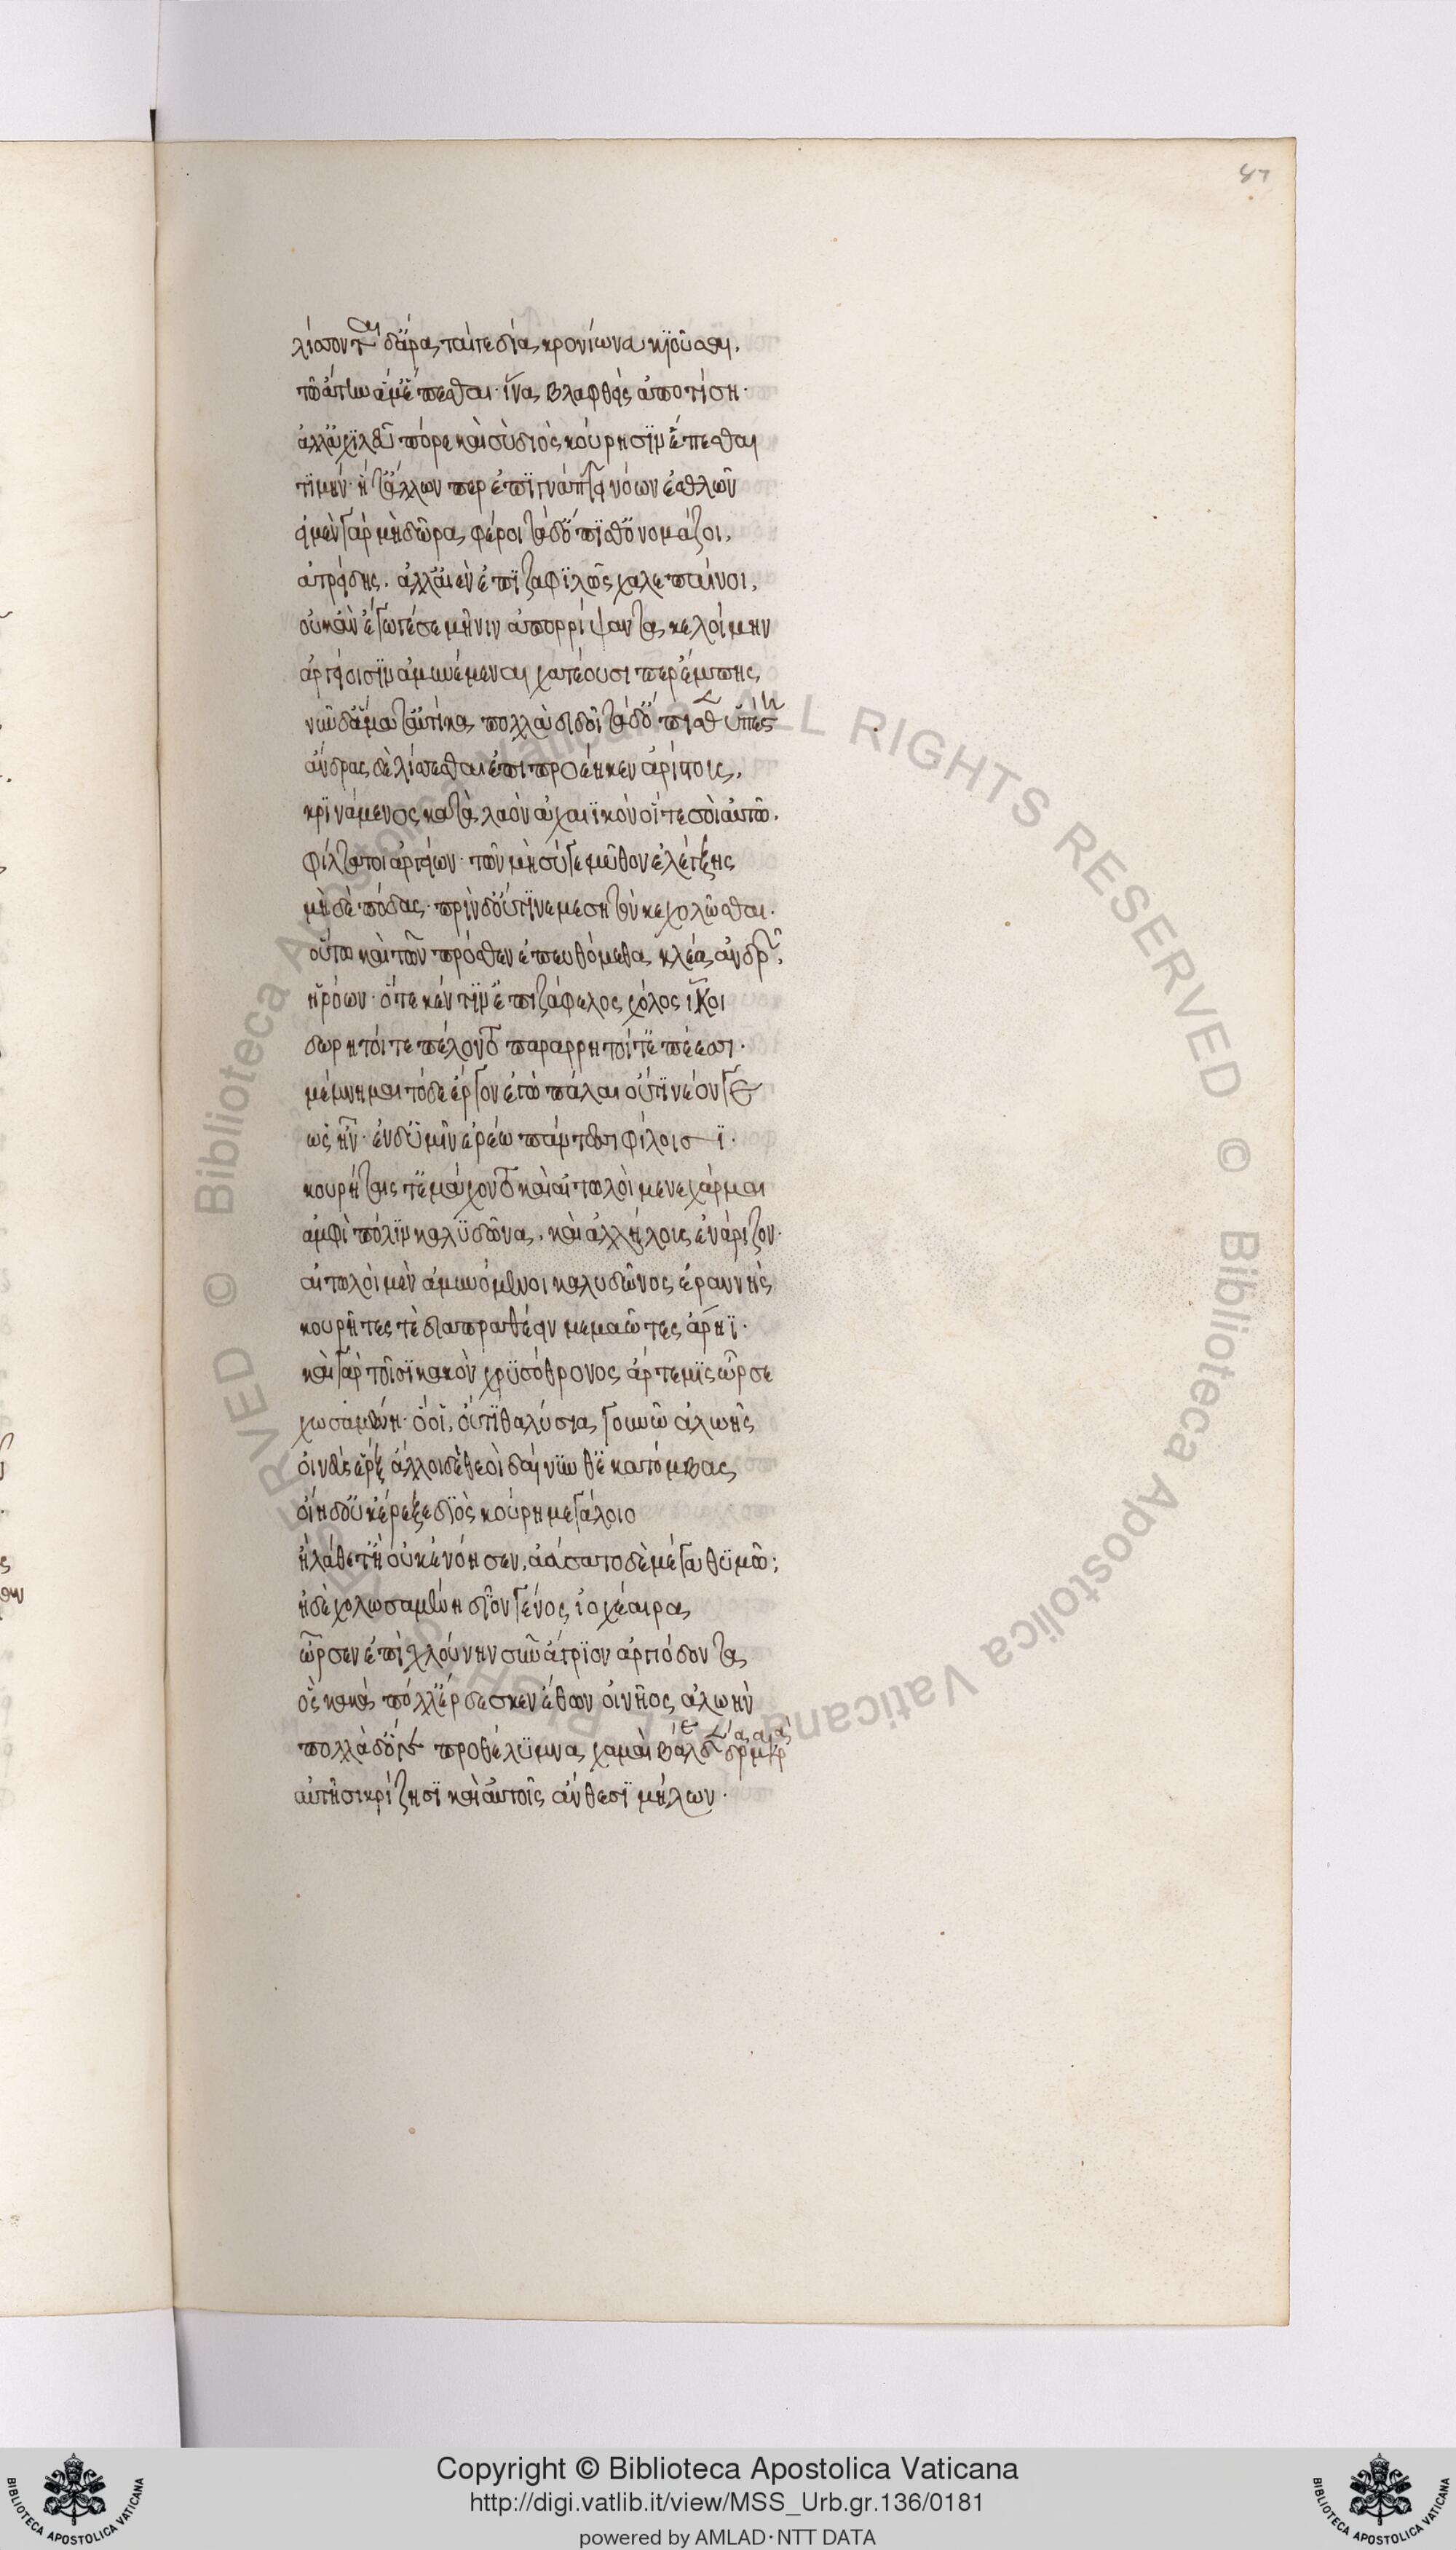 87
λίσσονται δ' ἄρα ταίτε δία κρονίωνα κιοῦσαι.
τῶ ἄτην ἅμ' ἕπεσθαι· ἵνα βλαφθεὶς ἀποτίση·
ἀλλ' ἀχιλεῦ πόρε καὶ σὺ διὸς κούρησϊν ἕπεσθαι
τϊμήν· ἥτ' ἄλλων περ ἐπϊγνάπτει νόων ἐσθλῶν
εἰ μὲν γὰρ μὴ δῶρα φέροι τὰ δ' ὄπϊσθ' ὀνομάζοι,
ἀτρείδης. ἀλλ' αἰὲν ἐπϊζαφϊλῶς χαλεπαίνοι,
οὐκ ἂν ἔγωγέ σε μῆνιν ἀπορρίψαντα κελοίμην
ἀργείοισϊν ἀμυνέμεναι χατέουσι περ ἔμπης
νῦν δ' ἅμα τ' αὐτίκα πολλὰ διδοῖ τὰ δ' ὄπισθεν ὑπέστη
ἄνδρας δὲ λίσσεσθαι ἐπιπροέηκεν ἀρίστους,
κρϊνάμενος κατὰ λαὸν ἀχαιϊκὸν οἵ τε σοὶ αὐτῶ.
φίλτατοι ἀργείων· τῶν μὴ σύ γε μῦθον ἐλέγξης
μὴ δὲ πόδας· πρὶν δ' οὔτϊ νεμεσητὸν κεχολῶσθαι.
οὕτω καὶ τῶν πρόσθεν ἐπευθόμεθα κλέα ἀνδρῶν,
ἡρώων· ὅτε κέν τϊν' ἐπιζάφελος χόλος ἵκοι
δωρητοί τε πέλοντο παραρρητοί τ' ἐπέεσσι·
μέμνημαι τόδε ἔργον ἐγὼ πάλαι οὔτϊ νέον γε
ὡς ἦν· ἐν δ' ὑμῖν ἐρέω πάντεσσι φίλοισϊ·
κουρῆταις τ' ἐμάχοντο καὶ αἰτωλοὶ μενεχάρμαι
ἀμφὶ πόλϊν καλϋδῶνα, καὶ ἀλλήλους ἐνάριζον·
αἰτωλοὶ μὲν ἀμυνόμενοι καλυδῶνος ἐραννῆς
κουρῆτες τὲ διαπραθέειν μεμαῶτες ἄρηϊ·
καὶ γὰρ τοῖσϊ κακὸν χρϋσόθρονος ἄρτεμϊς ὦρσε
χωσαμένη· ὅ οἵ, οὔτϊ θαλύσια γουνῶ ἀλωῆς
οἰνεὺς ἔρξ' ἄλλοι δὲ θεοὶ δαίνϋνθ' ἑκατόμβας
οἴη δ' οὐκ ἔρεξε δϊὸς κούρη μεγάλοιο
ἢ λάθετ' ἢ οὐκ ἐνόησεν, ἀάσατο δὲ μέγα θϋμῶ;
ἡ δὲ χολωσαμένη δῖον γένος ἰοχέαιρα
ὦρσεν ἐπὶ χλούνην σῦν ἄγρϊον ἀργιόδοντα
ὃς κακὰ πόλλ' ἔρδεσκεν ἔθων οἰνῆος ἀλωὴν
πολλὰ δ' ὅγε προθέλϋμνα χαμαὶ βάλε δένδρεα μακρὰ
αὐτῆσι κρίζησϊ καὶ αὐτοῖς ἄνθεσϊ μήλων·
Copyright © Biblioteca Apostolica Vaticana
http://digi.vatlib.it/view/MSS_Urb.gr.136/0181
powered by AMLAD·NTT DATA